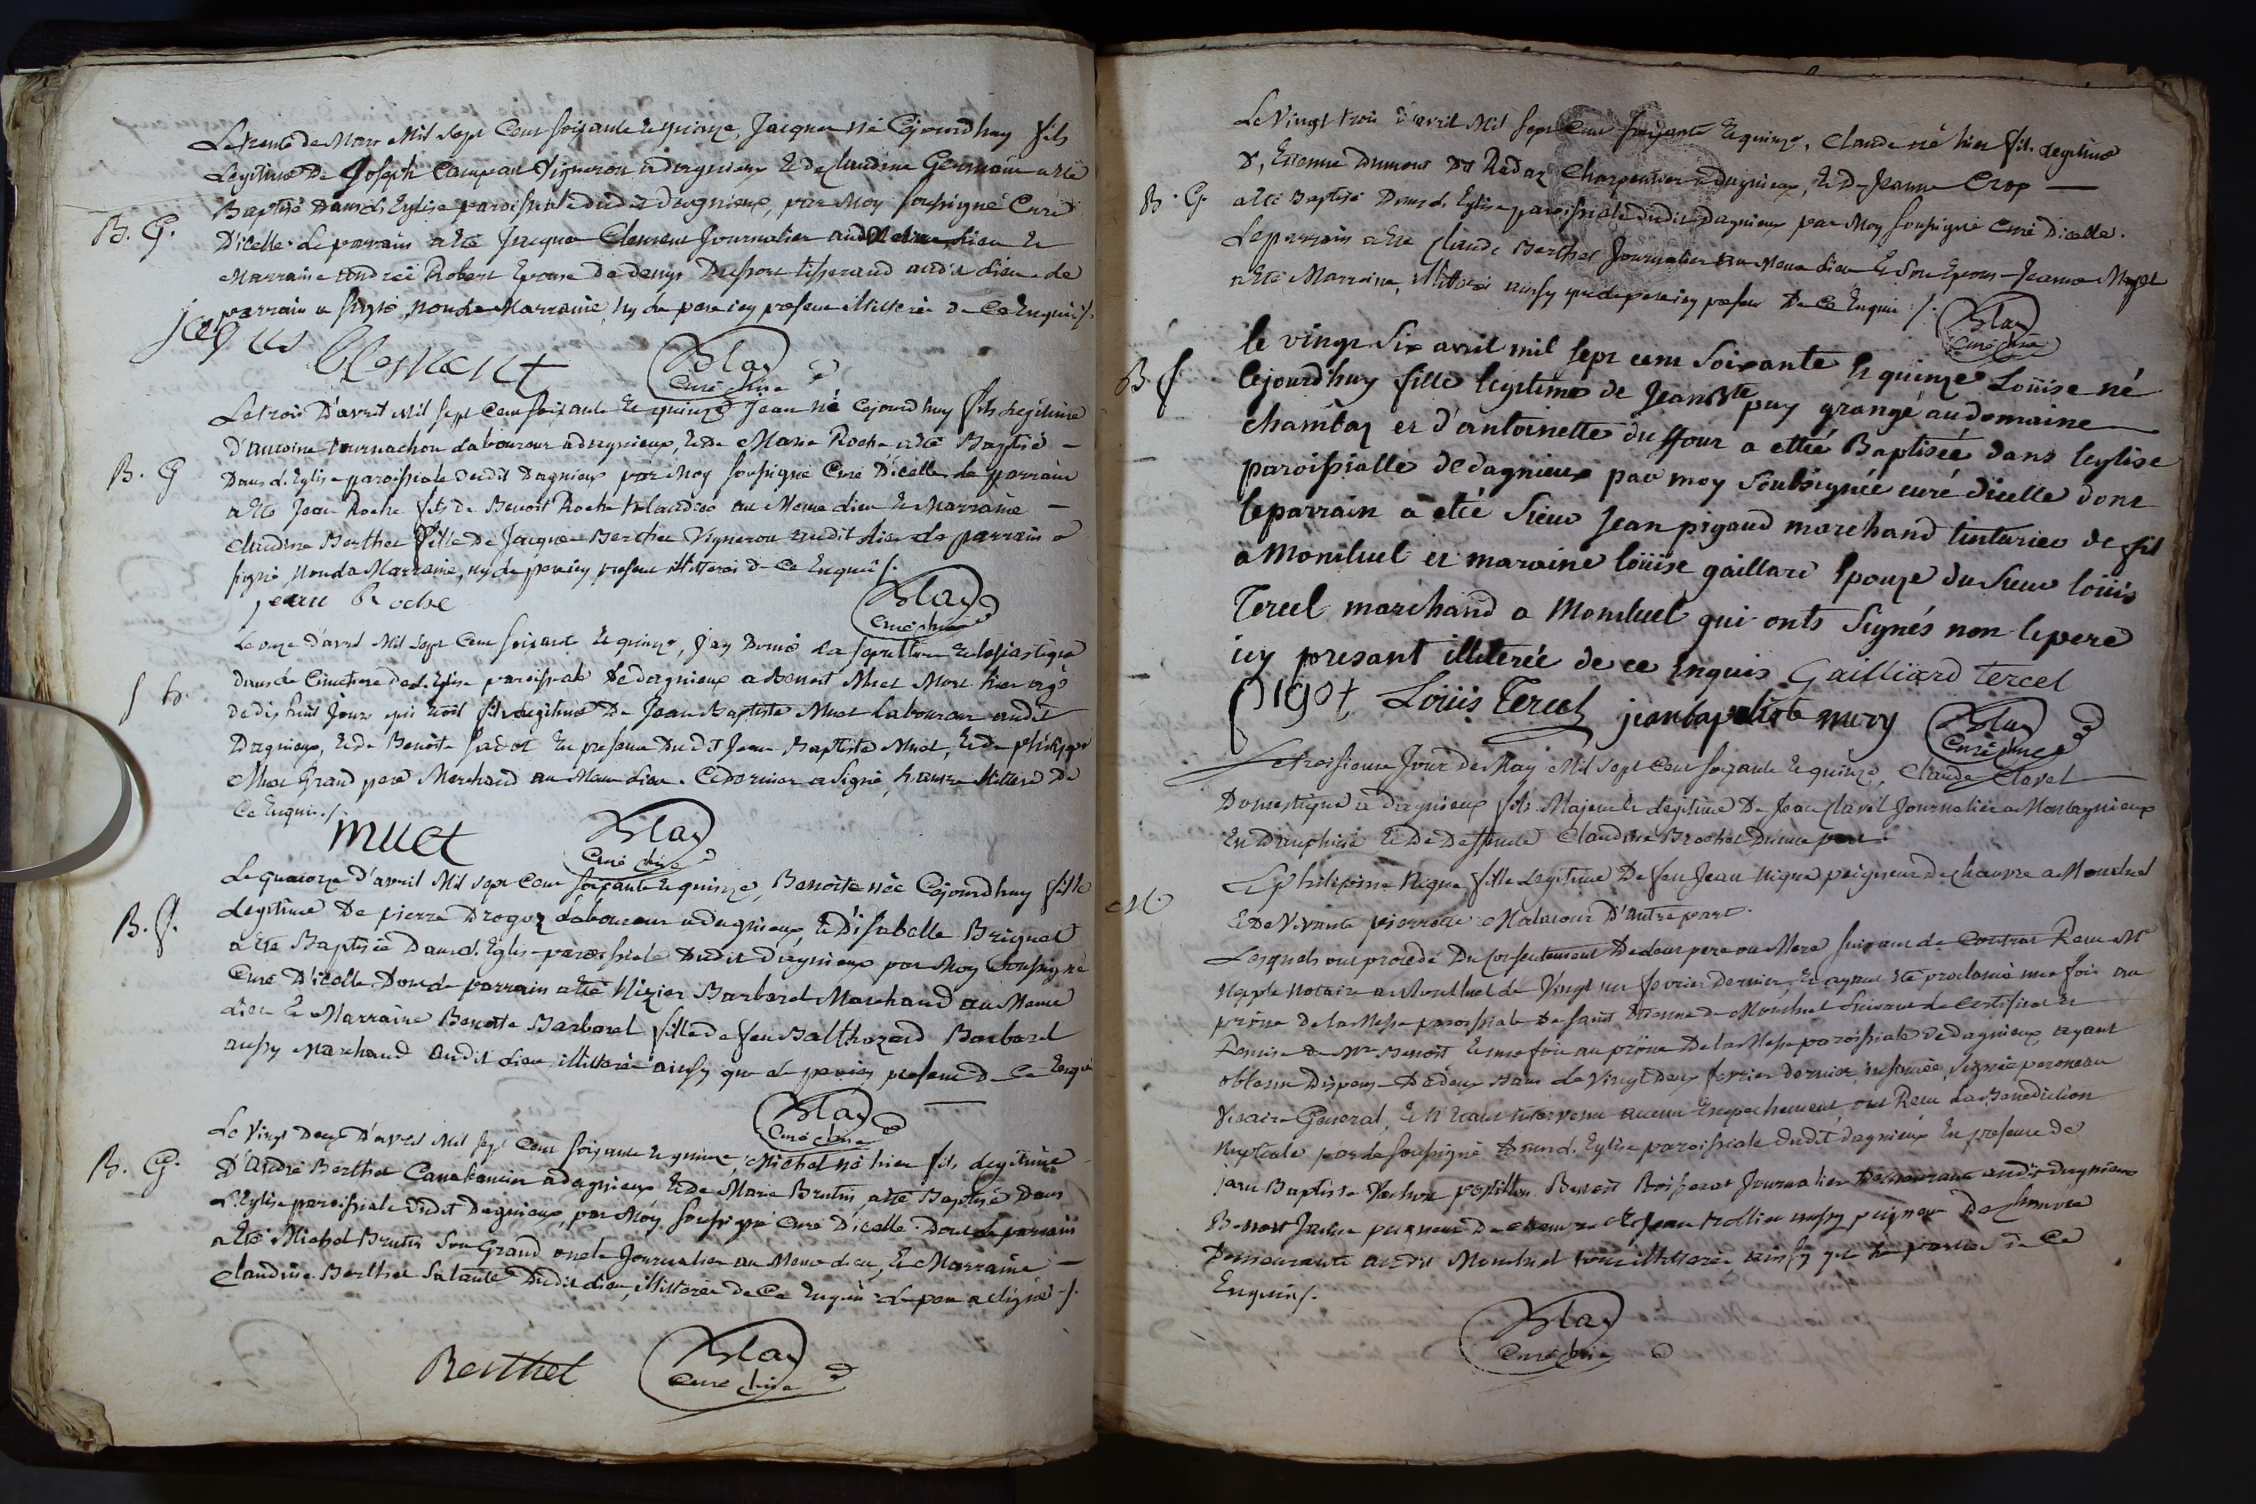 Le trente de Mars Mil sept Cent soixante et quinze, Jacques né Cejourd'huy fils
Legitime De Joseph Campant Vigneron a dagnieux et de Claudine Germain a eté
Baptisé Dans L'Eglise paroissiale dudit dagnieux, par Moy soussigné Curé
B. G.
D'icelle. Le parrain a eté Jacques Clement Journalier audit lieu et
Marraine Andreé Robert Epouse De denys Dufsort tisserand audit lieu. Le
parrain a signé, non la Marraine, ny le pere icy present illitterés de Ce Enquis ./.
jcques Clemant
Blay
Curé
Le trois D'avril Mil sept Cent soixante et quinze Jean né Cejourd'huy fils Legitime
d'antoine tournachon Laboureur a dagnieux, et de Marie Roche a eté Baptisé
B. G
Dans L'Eglise paroissiale dudit Dagnieux par Moy soussigné Curé D'icelle le parrain
a eté Jean Roche fils de Benoit Roche au Meme Lieu et Marraine
Claudine Berthet fille De Jacques Berthet Vigneron audit lieu le parrain a
signé, non la Marraine, ny le pere icy present illitterés de Ce Enquis ./.
jean Roche
Blay
Curé
Le onze d'avril Mil sept Cent soixante et quinze, J'ay Donné La sepulture Ecclesiastique
dans le Cimetiere de L'Eglise paroissiale de dagnieux a Benoit Muet Mort hier agé
S. G.
de dix huit Jours qui etoit fils Legitime De Jean Baptiste Muet Laboureur audit
Dagnieux, et de Benoite En presence Dudit Jean Baptiste Muet, et de philippe
Muet Grand pere Marchand au Meme Lieu. Ce dernier a signé, L'autre illitteré De
Ce Enquis ./.
muet
Blay
Curé
Le quatorze d'avril Mil sept Cent soixante et quinze, Benoite née Cejourd'huy fille
Legitime De pierre Droguz Laboureur a dagnieux, et D'isabelle Brignet
B. f.
a eté Baptisée Dans L'Eglise paroissiale Dudit dagnieux par Moy soussigné
Curé D'icelle, Dont le parrain a eté Nizier Barbaret Marchand au Meme
Lieu et Marraine Benoite Barbaret fille de feu Balthazard Barbaret
aussy Marchand audit lieu, illitterée ainsy que le pere icy present De Ce Enquis
Blay
Curé
Le Vingt Deux D'avril Mil sept Cent soixante et quinze, Michel né hier fils Legitime
B. G.
D'andré Berthet a dagnieux et de Marie Brutin, a eté Baptisé Dans
L'Eglise paroissiale dudit Dagnieux, par Moy soussigné Curé D'icelle. Dont le parrain
a eté Michel Brutin Son Grand oncle Journalier au Meme Lieu, et Marraine
Claudine Berthet Sa tante Dudit lieu, illitterés de Ce Enquis Le pere a signé ./.
Berthet
Blay
Curé
Le Vingt trois d'avril Mil sept Cent soixante et quinze, Claude né hier fils Legitime
D'Etienne Dumont Charpentier a Dagnieux, et De Jeanne Crop
B. G.
a eté Baptisé Dans L'Eglise paroissiale dudit Dagnieux par Moy soussigné Curé D'icelle.
Le parrain a eté Claude Berthet Journalier au Meme Lieu et Son Epouse Jeanne
a eté Marraine, illitterés aussy que le pere icy present De Ce Enquis ./.
Blay
Curé
le vingt Six avril mil sept cent soixante et quinze Loüise né
B. f.
cejourd'huy fille legitime de Jean Bte puy grangé au domaine
chambaz et d'antoinette duffour a ettée Baptisée dans leglise
paroissialle de dagnieux par moy soubsignée curé dicelle dont
le parrain a été Sieur Jean pigaud marchand tinturier de fil
a Montluel et maraine loüise gaillard Epouze du Sieur loüis
Tercel marchand a Montluel qui onts Signés non le pere
icy present illiterée de ce enquis Gailliard tercel
pigot Loüis Tercel jeanbaptiste
Blay
Curé
Le troisieme Jour De May Mil sept Cent soixante et quinze, Claude Clavel
Domestique a dagnieux fils Majeur et Legitime De Jean Clavel Journalier a Montagnieux
En Dauphiné et De Deffunte Claudine Brochet D'une part.
Et philippine Nique fille Legitime De feu Jean Nique peigneur De chanvre a Montluel
M.
et De Vivante pierrette D'autre part.
Lesquels ont procedé Du Consentement De leur pere ou Mere suivant le Contrat Reçu Me
Notaire a Montluel le Vingt un fevrier Dernier, et ayant eté proclamés une fois au
prône de la Messe paroissiale De Saint Etienne de Montluel suivant le Certificat et
Remise de Mr Benoit et une fois au prône De la Messe paroissiale de dagnieux ayant
obtenu Dispense De deux bans Le Vingt Deux fevrier dernier, insinuée, signée
Vicaire General, et N'etant intervenu aucun Empechement, ont Reçu La Benediction
Nuptiale par le soussigné Dans L'Eglise paroissiale dudit dagnieux En presence de
jean Baptiste postillon Benoit Journalier Demeurant audit dagnieux
Benoit peigneur De chanvre et Jean aussy peigneur De chanvre
Demeurants audit Montluel tous illitterés ainsy que les parties De Ce
Enquis ./.
Blay
Curé